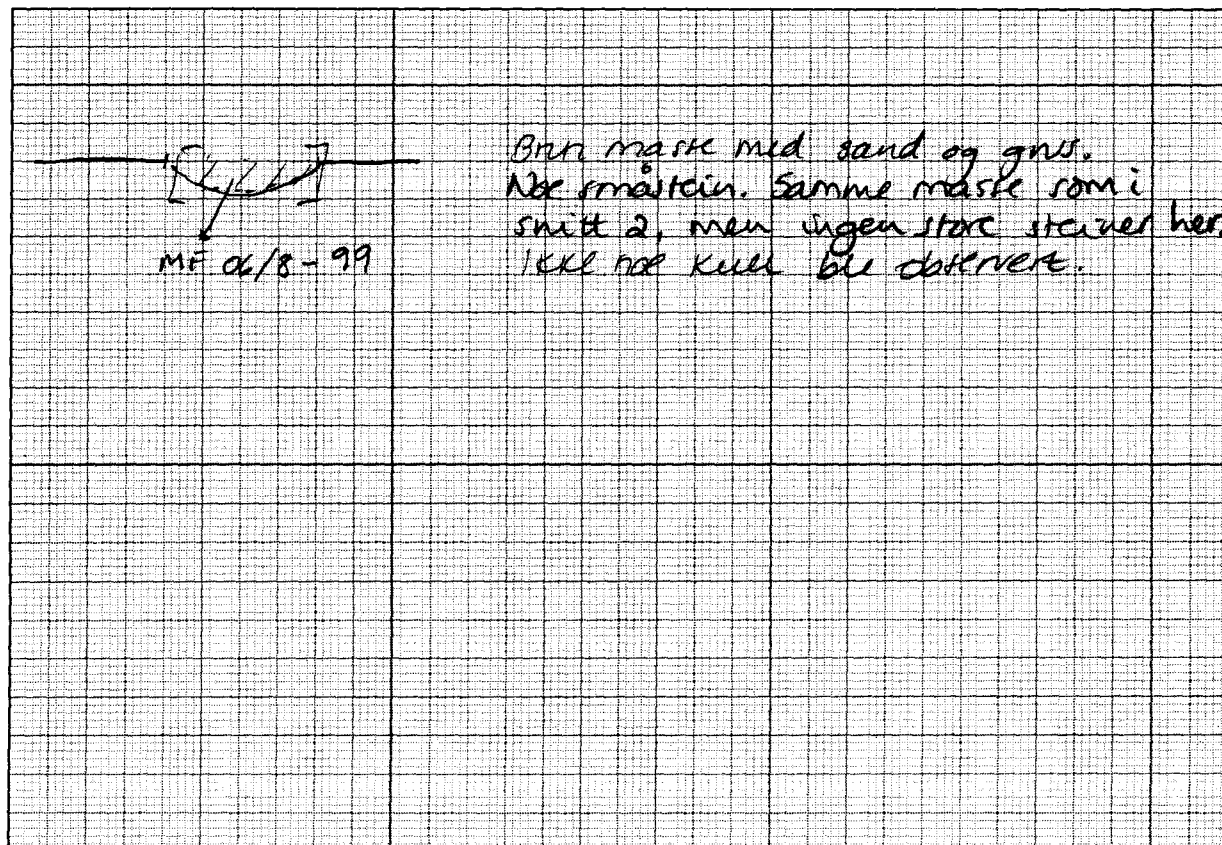 Brun masse med sand og grus.
Noe småstein. Samme masse som i
snitt 2, men ingen store steiner her.
Ikke noe kull ble observert.
MF 06/8-99